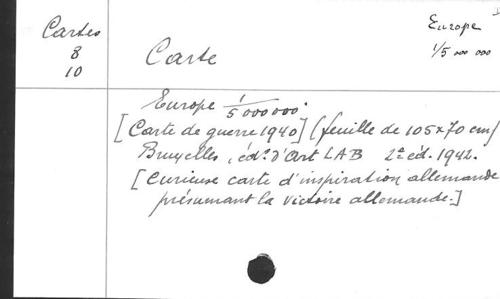 Cartes
8
10
Europe
1/5 000 000
Carte
Europe 1/5 000 000.
[Carte de guerre 1940] (feuille de 105x70 cm)
Bruxelles, éd. d'Art LAB 2e éd. 1942.
[curieuse carte d'inspiration allemande
présumant la victoire allemande.]